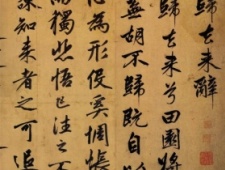 歸去來辭
歸去来兮田園將
蕪胡不歸既自以
為形役奚惆悵
而獨悲悟已往之不
諫知来者之可追